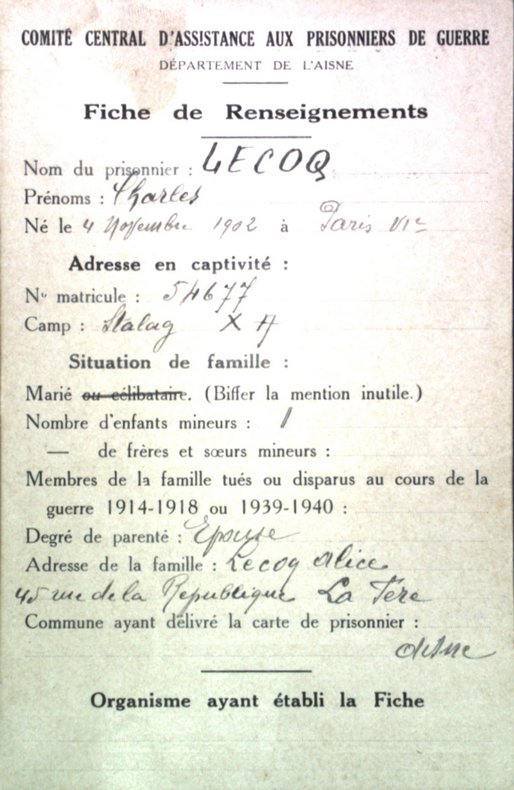 COMITÉ CENTRAL D'ASSISTANCE AUX PRISONNIERS DE GUERRE
DÉPARTEMENT DE L'AISNE
Fiche de Renseignements
Nom du prisonnier : LECOQ
Prénoms : Charles
Né le 4 Novembre 1902 à Paris VIe
Adresse en captivité :
No matricule : 54677
Camp : Stalag X A
Situation de famille :
Marié ou célibataire. (Biffer la mention inutile.)
Nombre d'enfants mineurs : 1
— de frères et sœurs mineurs :
Membres de la famille tués ou disparus au cours de la
guerre 1914-1918 ou 1939-1940 :
Degré de parenté : Epouse
Adresse de la famille : Lecoq Alice
45 rue de la Republique La Fère
Commune ayant délivré la carte de prisonnier :
Aisne
Organisme ayant établi la Fiche